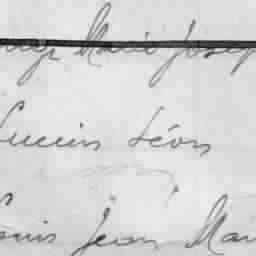 Marie Josep
Lucien Léon
Louis Jean Mari